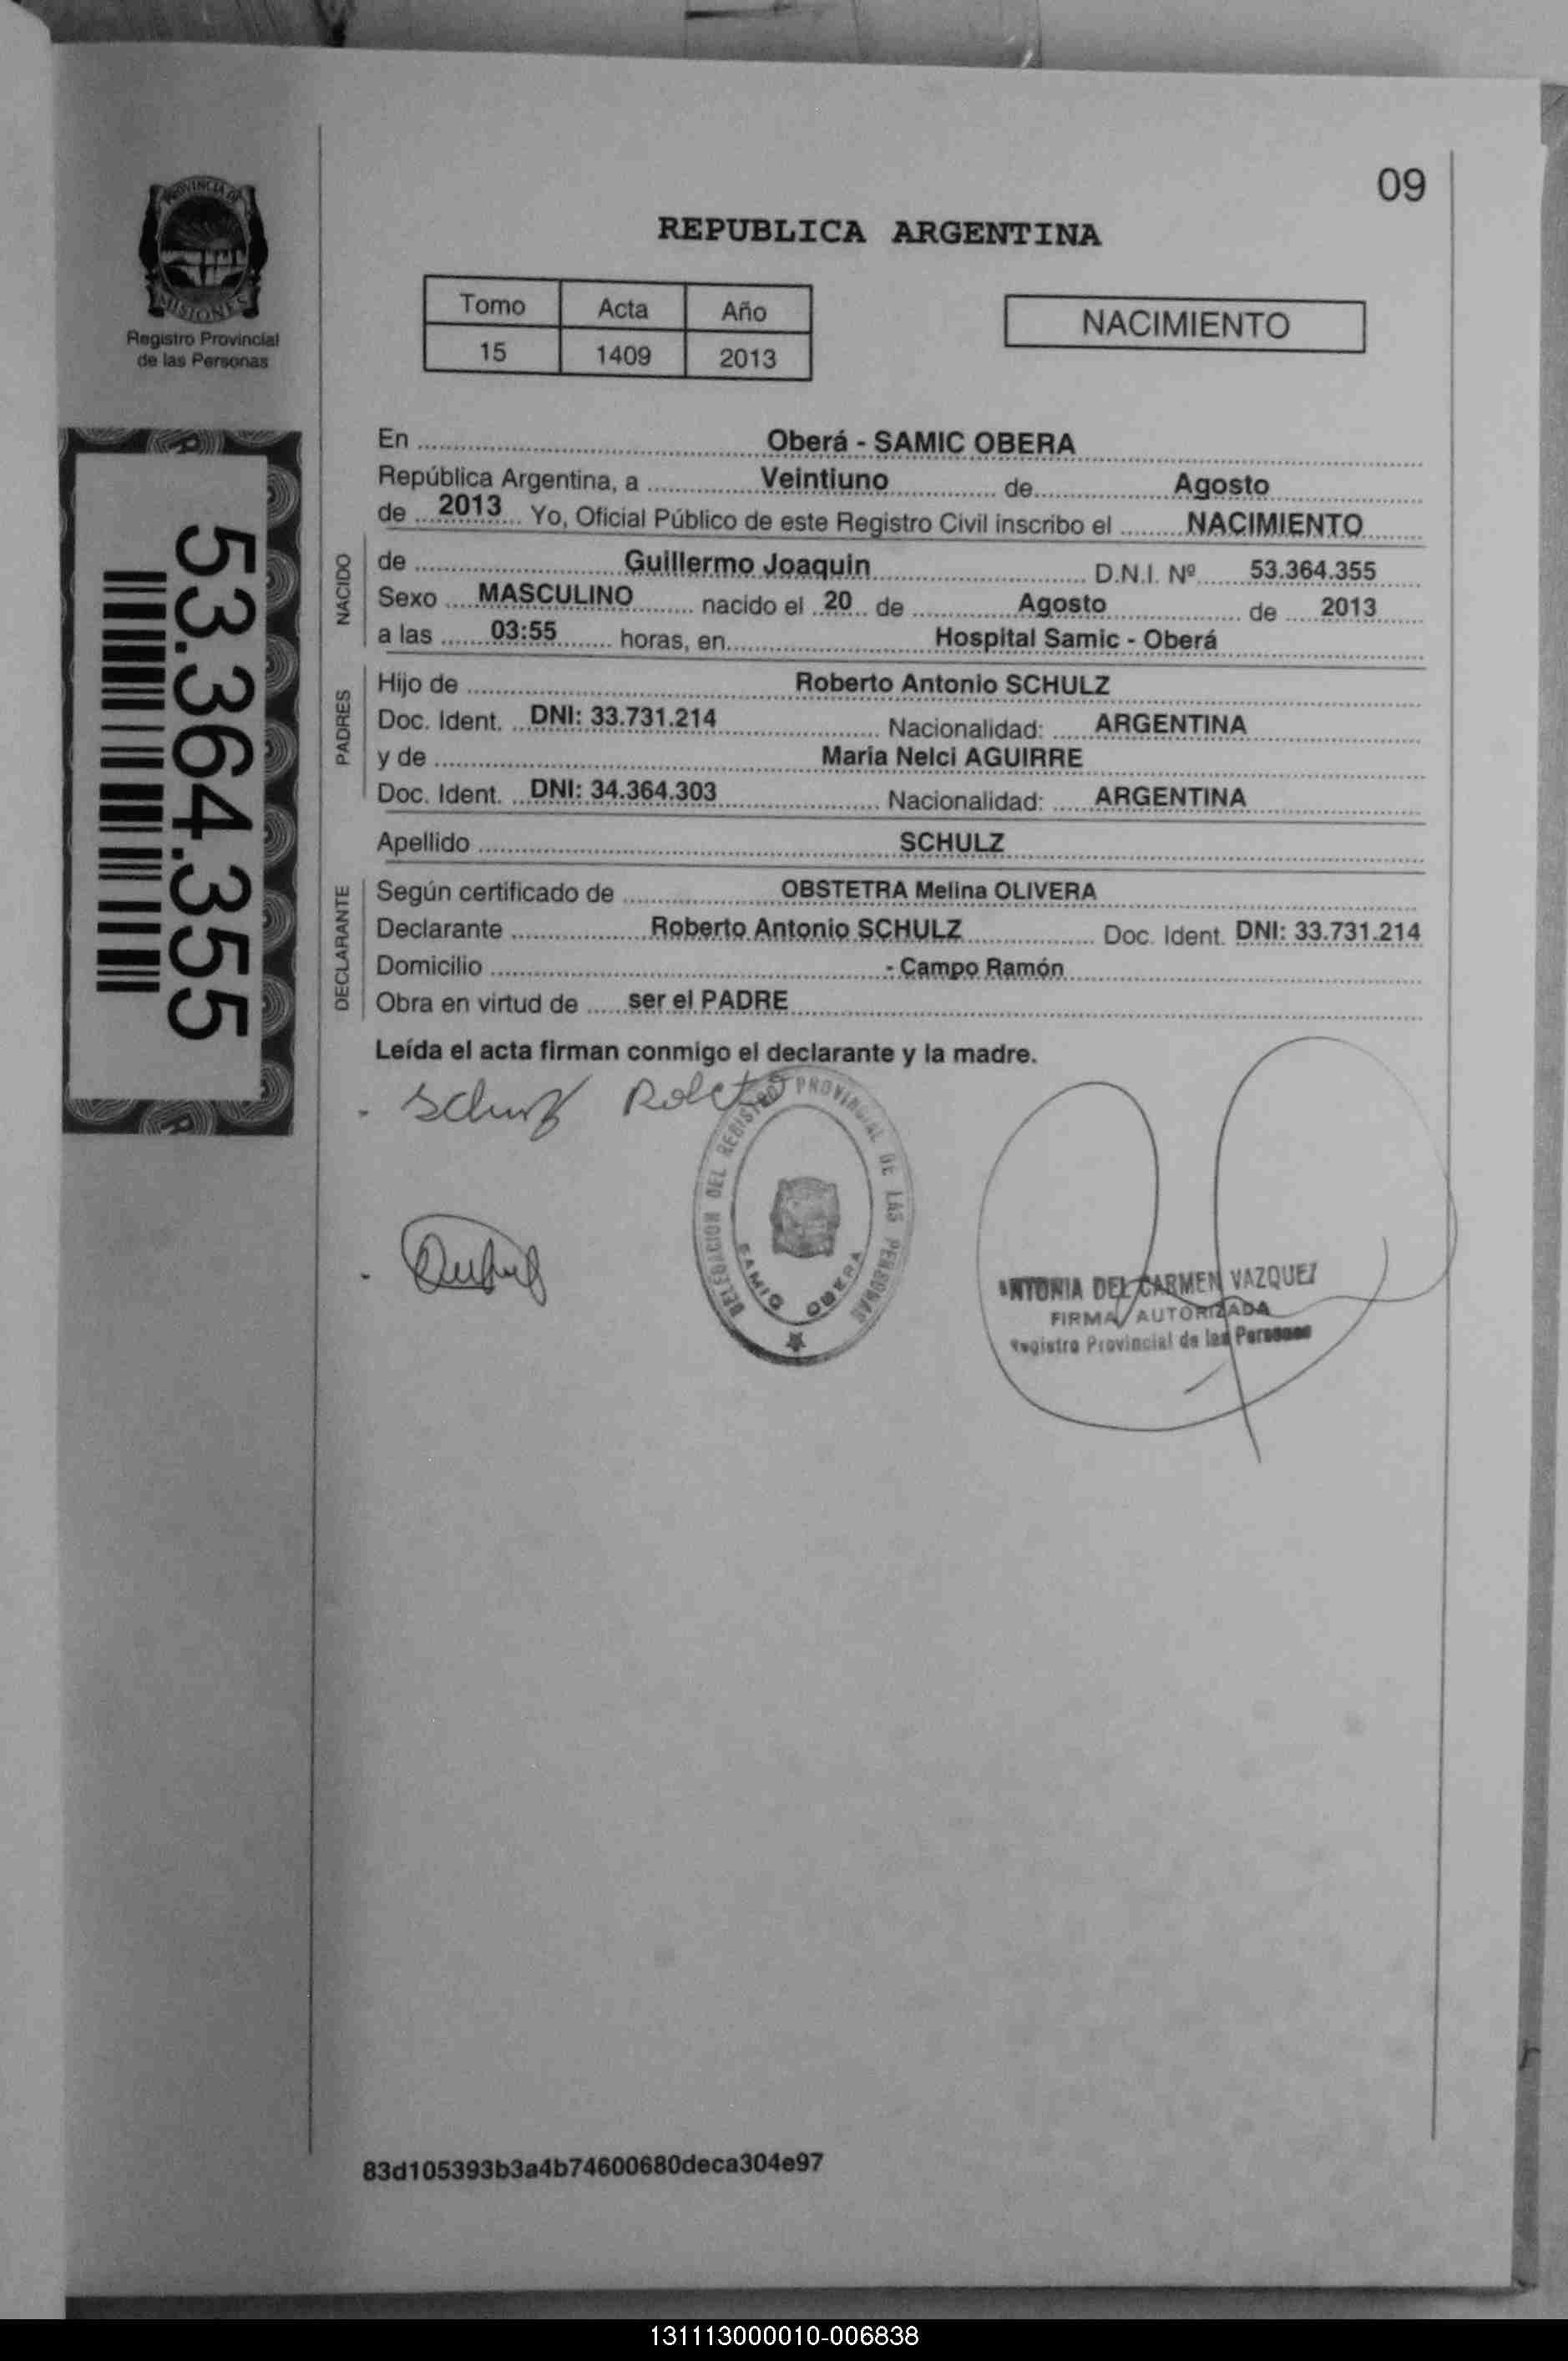 09
PROVINCIA DE
MISIONES
Registro Provincial
de las Personas
REPUBLICA ARGENTINA
Tomo Acta Año
15 1409 2013
NACIMIENTO
53.364.355
En Oberá - SAMIC OBERA
República Argentina, a Veintiuno de Agosto
de 2013 Yo, Oficial Público de este Registro Civil inscribo el NACIMIENTO
NACIDO
de Guillermo Joaquin D.N.I. Nº 53.364.355
Sexo MASCULINO nacido el 20 de Agosto de 2013
a las 03:55 horas, en Hospital Samic - Oberá
PADRES
Hijo de Roberto Antonio SCHULZ
Doc. Ident. DNI: 33.731.214 Nacionalidad: ARGENTINA
y de Maria Nelci AGUIRRE
Doc. Ident. DNI: 34.364.303 Nacionalidad: ARGENTINA
Apellido SCHULZ
DECLARANTE
Según certificado de OBSTETRA Melina OLIVERA
Declarante Roberto Antonio SCHULZ Doc. Ident. DNI: 33.731.214
Domicilio - Campo Ramón
Obra en virtud de ser el PADRE
Leída el acta firman conmigo el declarante y la madre.
DELEGACION DEL REGISTRO PROVINCIAL DE LAS PERSONAS
SAMIC OBERA
ANTONIA DEL CARMEN VAZQUEZ
FIRMA AUTORIZADA
Registro Provincial de las Personas
83d105393b3a4b74600680deca304e97
131113000010-006838